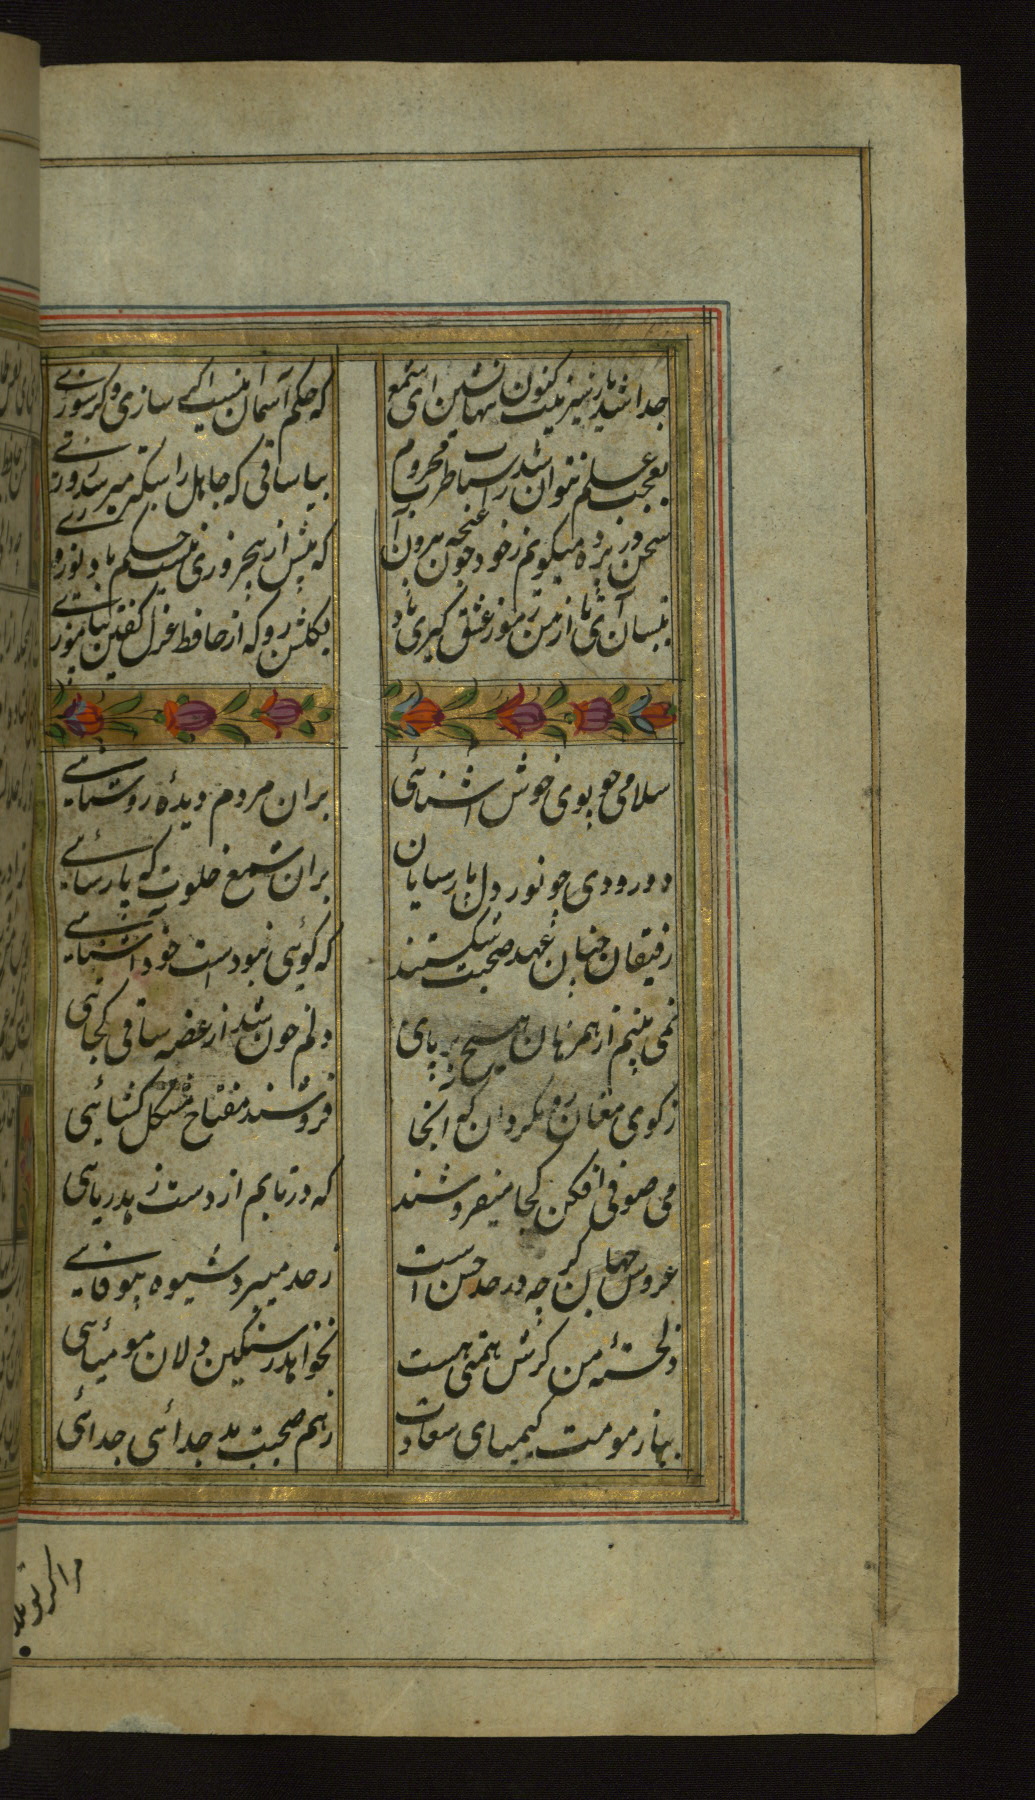 جدا شد یار شیرینت کنون تنها نشین ای شمع
که حکم آسمان اینست اگر سازی وگر سوزی
بعجب علم نتوان شد ز اسباب طرب محروم
بیا ساقی که جاهل را هنی‌تر میرسد روزی
سخن در پرده میگویم ز خود چون غنچه بیرون آی
که بیش از پنج روزی نیست حکم باد نوروزی
بگلشن رو که از حافظ غزل گفتن بیاموزی
سلامی چو بوی خوش آشنائی
بران مردم دیدۀ روشنایی
درودی چو نور دل پارسایان
بران شمع خلوت که پارسائی
رفیقان چنان عهد صحبت شکستند
که گوئی نبودست خود آشنایی
نمی بینم از همرهان هیچ بر پای
دلم خون شد از غصه ساقی کجائی
ز کوی مغان رو مگردان که انجا
فروشند مفتاح مشکل کشائی
می صوفی افکن کجا میفروشند
که در تابم از دست زهد ریائی
عروس جهان گر چه در حد حسن است
ز حد میبرد شیوه بیوفایی
دل خستۀ من گرش همتی هست
نخواهد ز سنگین دلان مومیائی
بیاموزمت کیمیای سعادت
ز هم صحبت بد جدائی جدائی
مرا گر تو